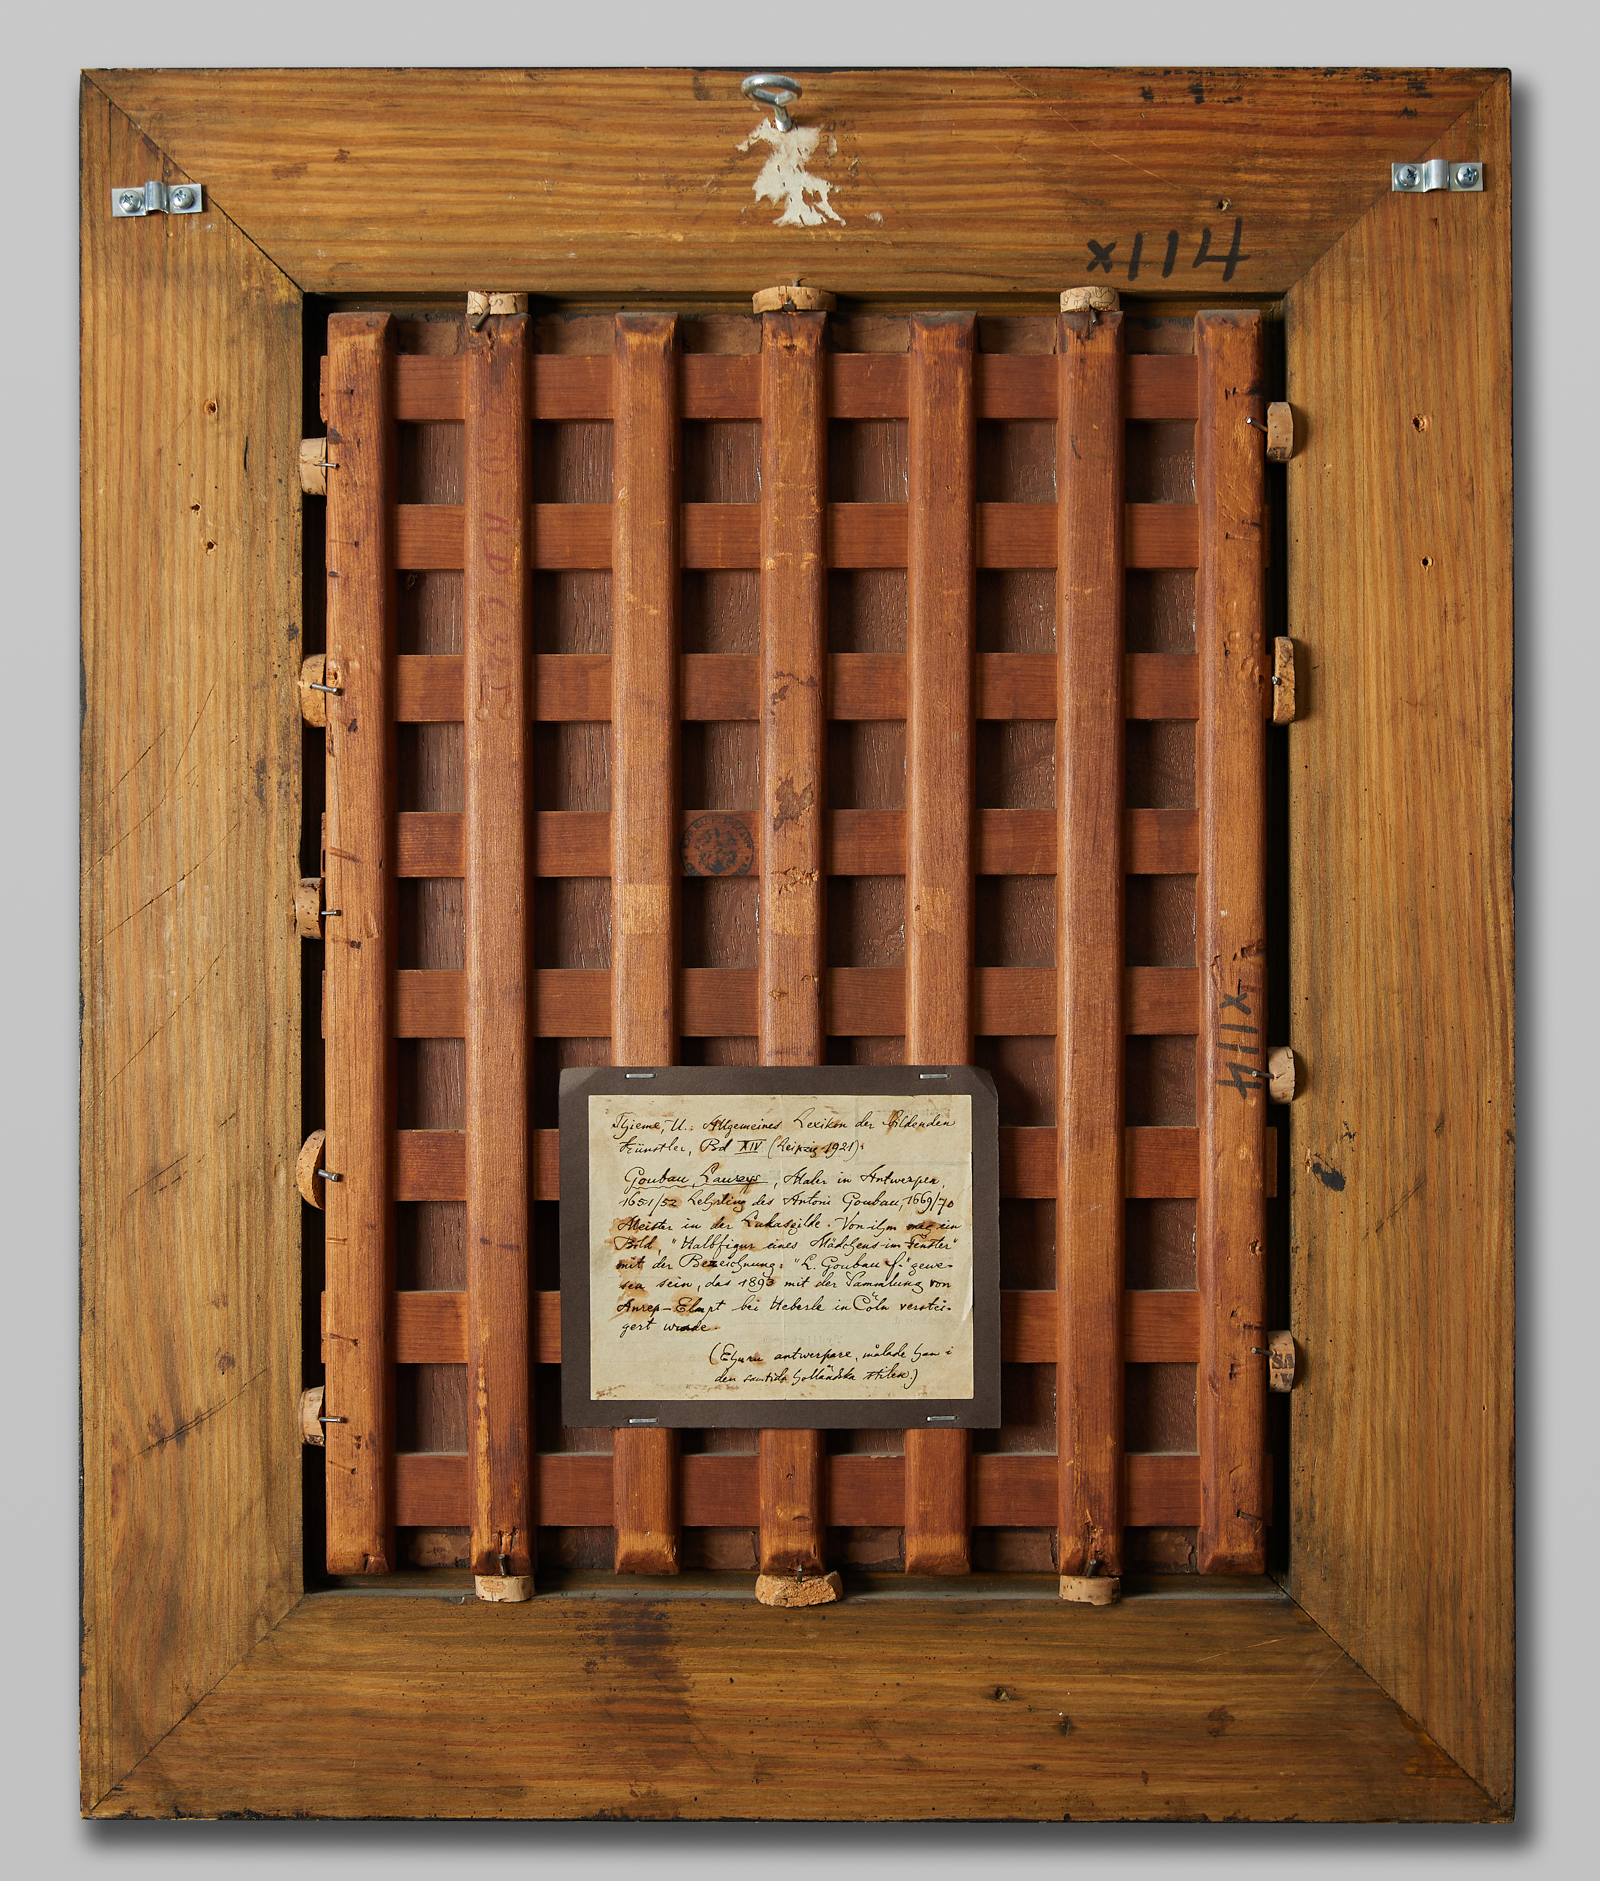 x114
x114
Thieme, U.: Allgemeines Lexikon der bildenden
Künstler, Bd XIV (Leipzig 1921):
Goubau, Laureys, Maler in Antwerpen,
1651/52 Lehrling des Antoni Goubau, 1669/70
Meister in der Lukasgilde. Von ihm mag ein
Bild, "Halbfigur eines Mädchens im Fenster"
mit der Bezeichnung: "L. Goubau f." gewe-
sen sein, das 1893 mit der Sammlung von
Anrep-Elmpt bei Heberle in Cöln verstei-
gert wurde.
(Ehuru antwerpare, målade han i
den samtida holländska stilen.)
SA